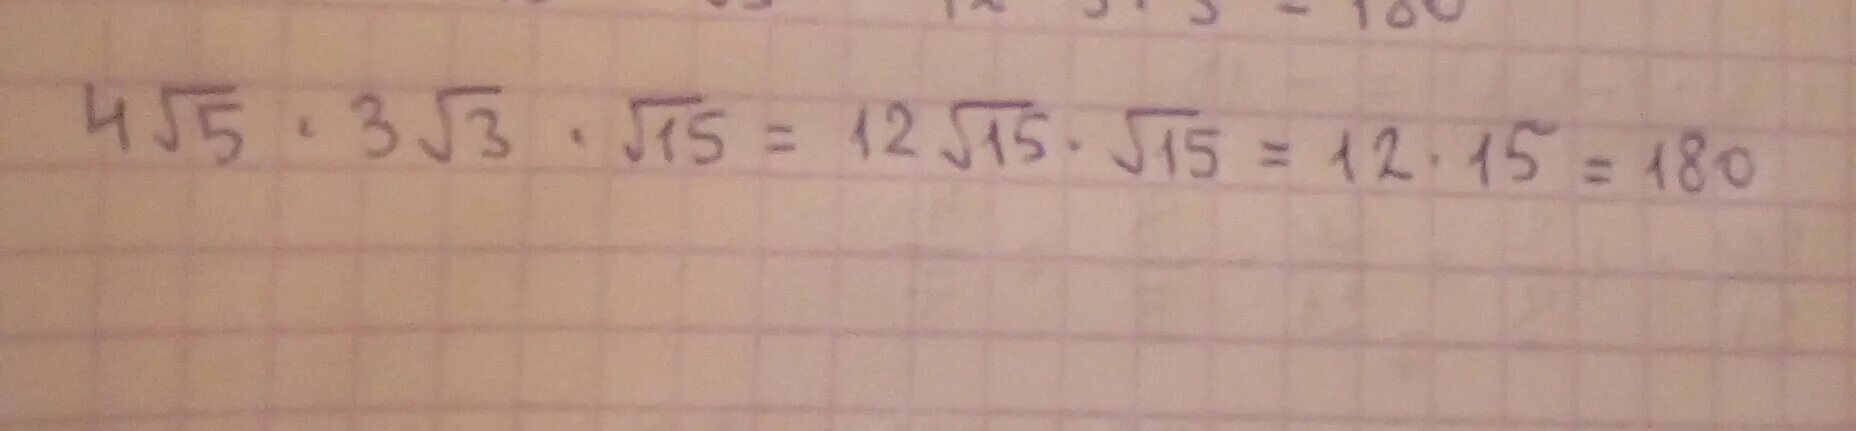 = 180
4√5 · 3√3 · √15 = 12√15 · √15 = 12 · 15 = 180